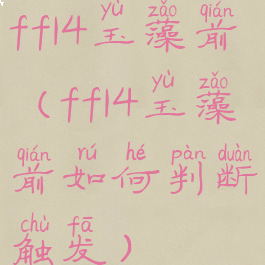 yù zǎo qián
ff14玉藻前
yù zǎo
(ff14玉藻
qián rú hé pàn duàn
前如何判断
chù fā
触发)